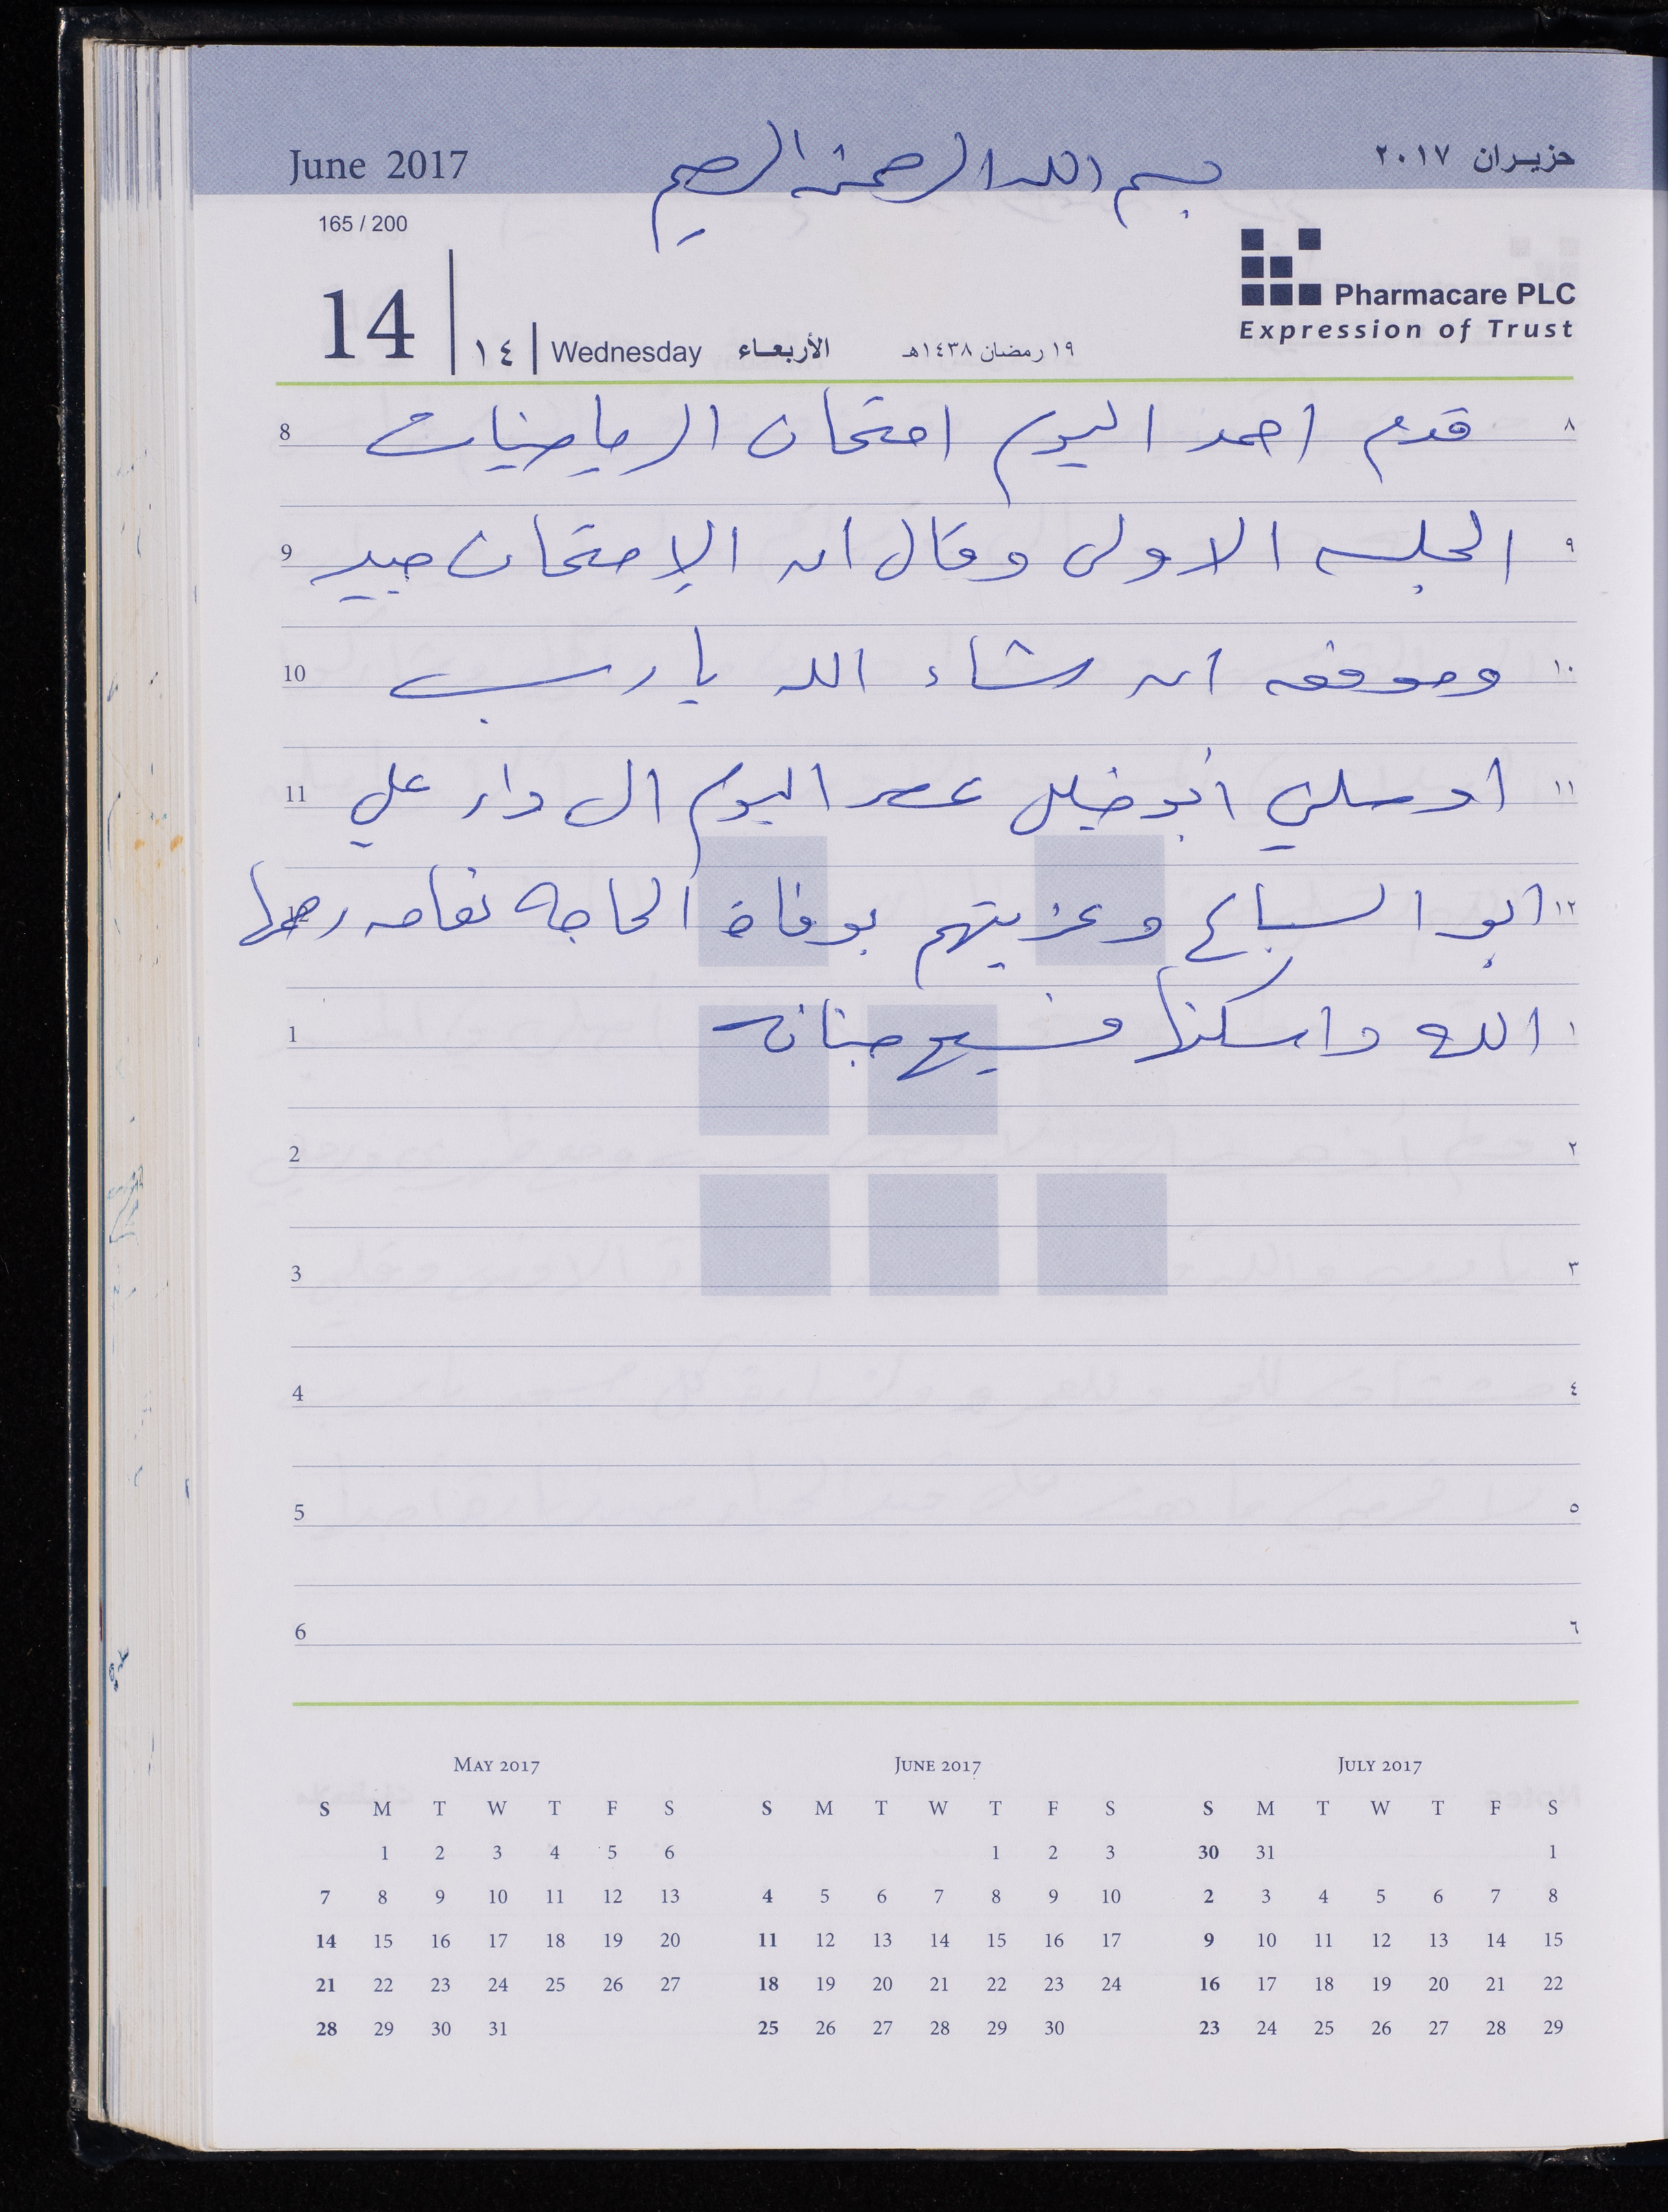 June 2017
بسم الله الرحمن الرحيم
حزيران ٢٠١٧
165 / 200
14 ١٤ Wednesday الأربعاء ١٩ رمضان ١٤٣٨هـ
Pharmacare PLC
Expression of Trust
8 قدم احمد اليوم امتحان الرياضيات ٨
9 الجلسه الاولى وقال ان الإمتحان جيد ٩
10 وموفقه ان شاء الله يا رب ١٠
11 اوصلني أبو خليل عصر اليوم الى دار علي ١١
ابو السباع وعزيتهم بوفاة الحاجه نعامه رحمها ١٢
1 الله واسكنها فسيح جناته ١
2 ٢
3 ٣
4 ٤
5 ٥
6 ٦
May 2017
S M T W T F S
1 2 3 4 5 6
7 8 9 10 11 12 13
14 15 16 17 18 19 20
21 22 23 24 25 26 27
28 29 30 31
June 2017
S M T W T F S
1 2 3
4 5 6 7 8 9 10
11 12 13 14 15 16 17
18 19 20 21 22 23 24
25 26 27 28 29 30
July 2017
S M T W T F S
30 31 1
2 3 4 5 6 7 8
9 10 11 12 13 14 15
16 17 18 19 20 21 22
23 24 25 26 27 28 29